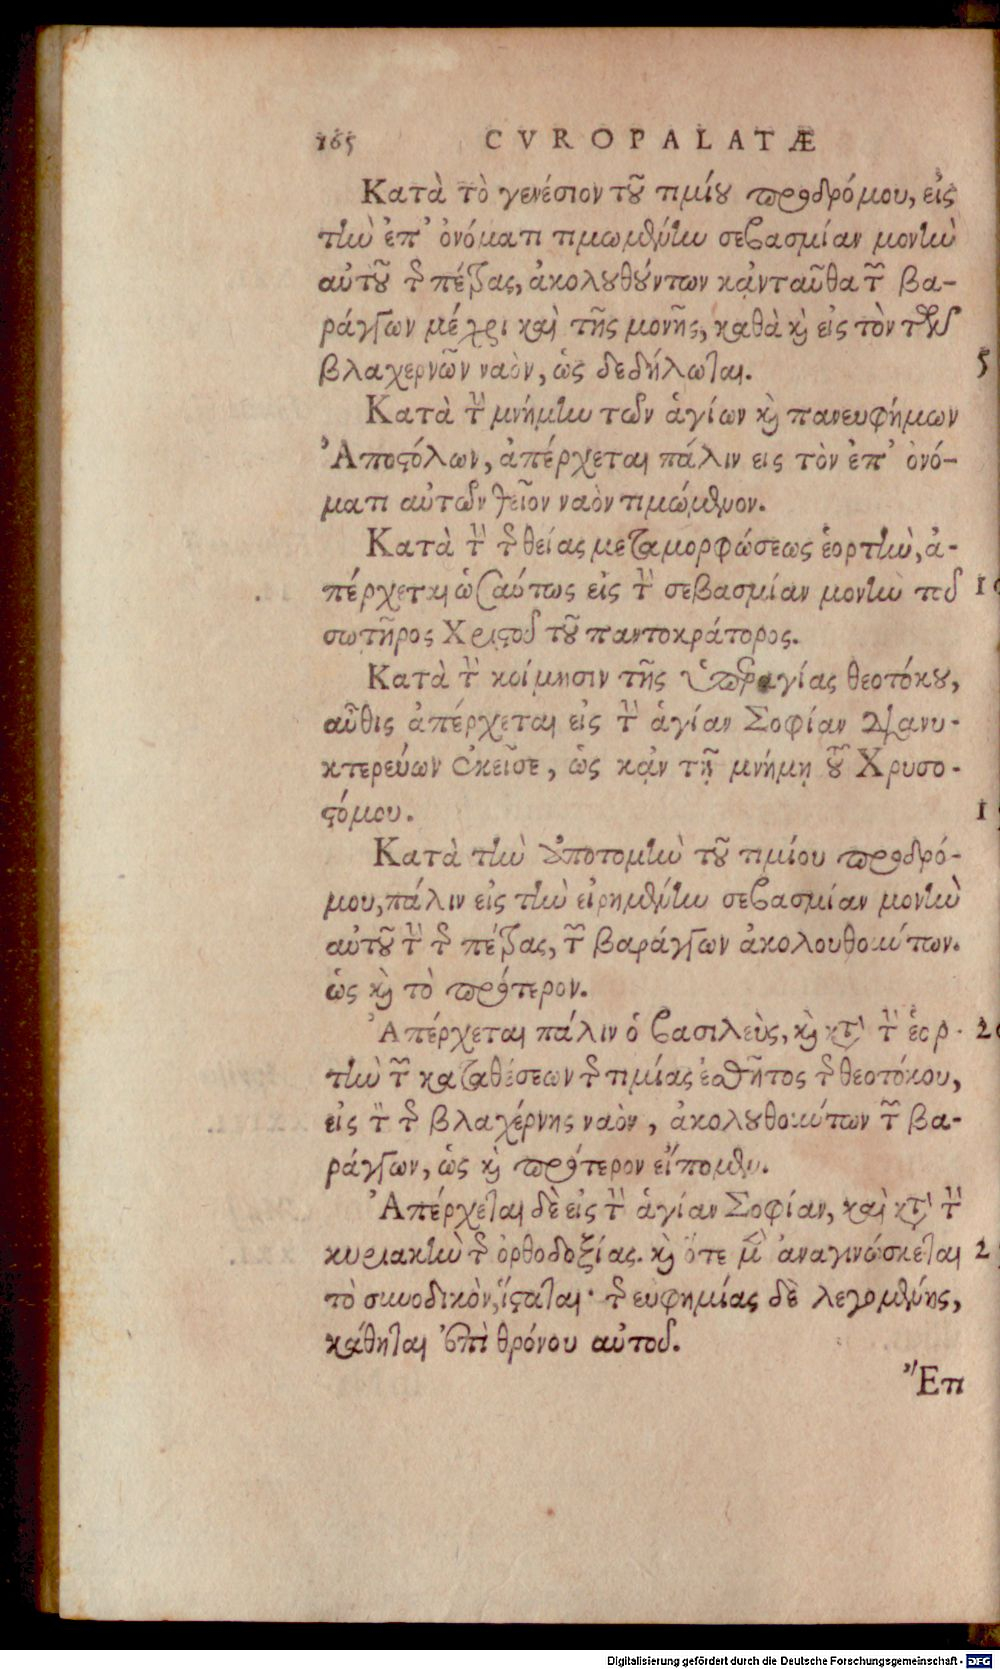 165 CVROPALATÆ
Κατὰ τὸ γενέσιον τοῦ τιμίου προδρόμου, εἰς
τὴν ἐπ' ὀνόματι τιμωμένην σεβασμίαν μονὴν
αὐτοῦ τῆς πέτρας, ἀκολουθούντων κᾀνταῦθα τῶν βα-
ράγγων μέχρι καὶ τῆς μονῆς, καθὰ καὶ εἰς τὸν τῶν
βλαχερνῶν ναὸν, ὡς δεδήλωται. 5
Κατὰ τὴν μνήμην τῶν ἁγίων καὶ πανευφήμων
Ἀποστόλων, ἀπέρχεται πάλιν εις τὸν ἐπ' ὀνό-
ματι αὐτῶν θεῖον ναὸν τιμώμενον.
Κατὰ τὴν τῆς θείας μεταμορφώσεως ἑορτὴν, ἀ-
πέρχεται ὡσαύτως εἰς τὴν σεβασμίαν μονὴν τοῦ 10
σωτῆρος Χριστοῦ τοῦ παντοκράτορος.
Κατὰ τὴν κοίμησιν τῆς ὑπεραγίας θεοτόκου,
αὖθις ἀπέρχεται εἰς τὴν ἁγίαν Σοφίαν διανυ-
κτερεύων ἐκεῖσε, ὡς κᾀν τῇ μνήμῃ τοῦ Χρυσο-
στόμου. 1
Κατὰ τὴν ἀποτομὴν τοῦ τιμίου προδρό-
μου, πάλιν εἰς τὴν εἰρημένην σεβασμίαν μονὴν
αὐτοῦ τὴν τῆς πέτρας, τῶν βαράγγων ἀκολουθούντων.
ὡς καὶ τὸ πρότερον.
Ἀπέρχεται πάλιν ὁ βασιλεὺς, καὶ κατὰ τὴν ἑορ- 20
τὴν τῶν καταθέσεων τῆς τιμίας ἐσθῆτος τῆς θεοτόκου,
εἰς τὸν τῆς βλαχέρνης ναὸν, ἀκολουθούντων τῶν βα-
ράγγων, ὡς καὶ πρότερον εἴπομεν.
Ἀπέρχεται δὲ εἰς τὴν ἁγίαν Σοφίαν, καὶ κατὰ τὴν
κυριακὴν τῆς ὀρθοδοξίας. καὶ ὅτε μὲν ἀναγινώσκεται 2
τὸ συνοδικὸν, ἵσταται· τῆς ευφημίας δὲ λεγομένης,
κάθηται ἐπὶ θρόνου αὐτοῦ.
Ἔπι
Digitalisierung gefördert durch die Deutsche Forschungsgemeinschaft - DFG